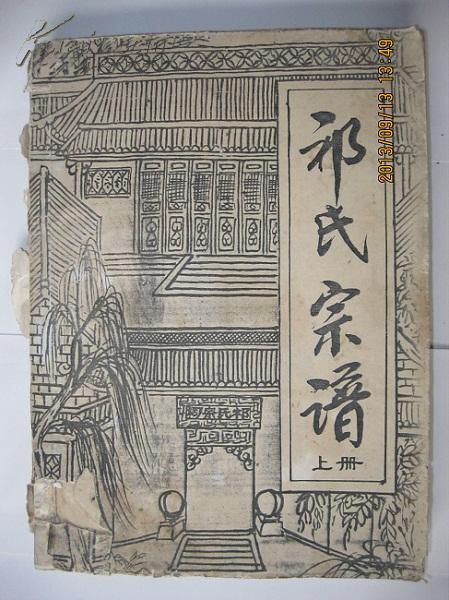 祁氏宗谱
上册
祁氏宗祠
2013/09/13 13:49